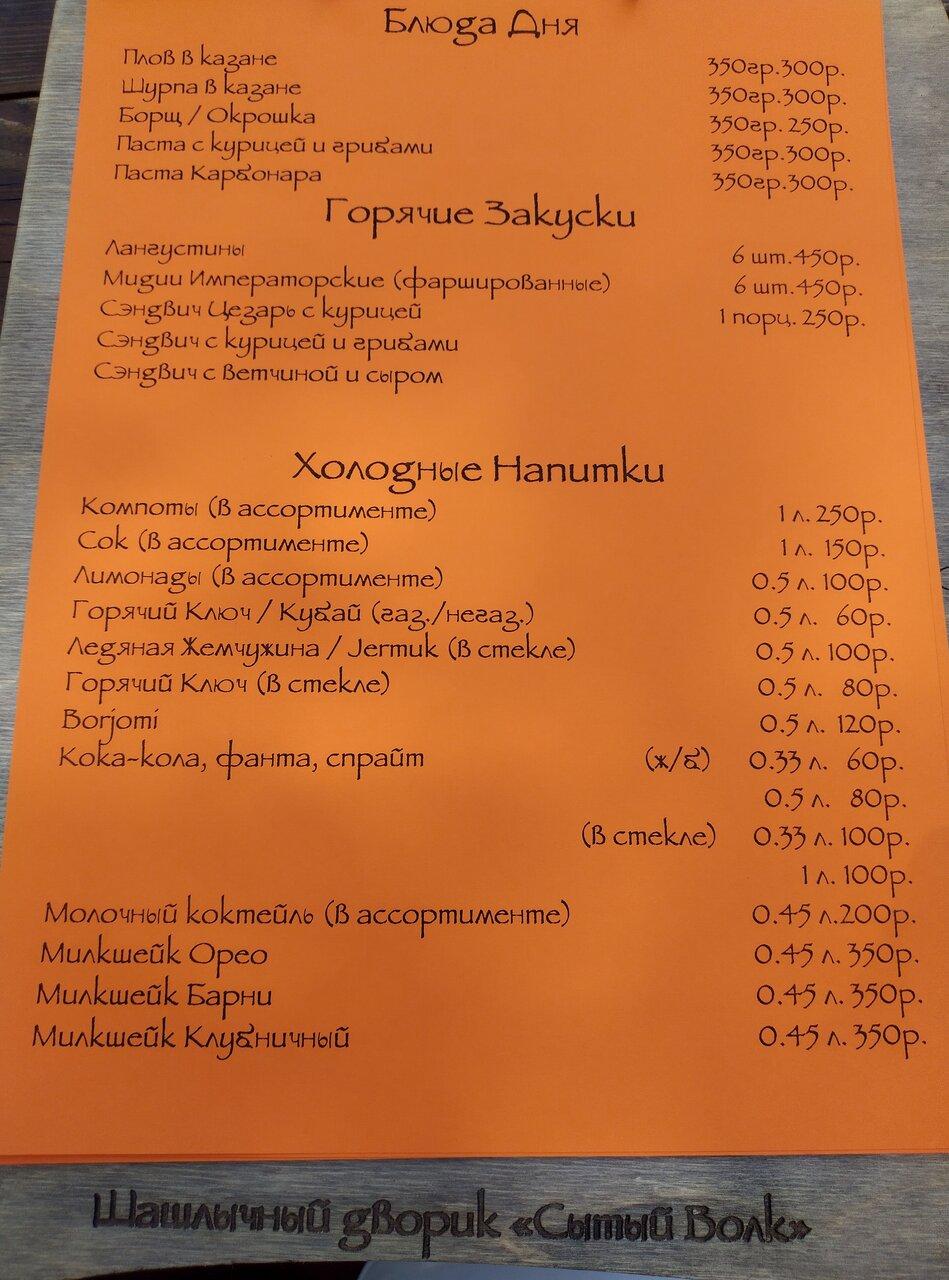 Блюда Дня
Плов в казане 350гр.300р.
Шурпа в казане 350гр.300р.
Борщ / Окрошка 350гр. 250р.
Паста с курицей и грибами 350гр.300р.
Паста Карбонара 350гр.300р.
Горячие Закуски
Лангустины 6 шт.450р.
Мидии Императорские (фаршированные) 6 шт.450р.
Сэндвич Цезарь с курицей 1 порц. 250р.
Сэндвич с курицей и грибами
Сэндвич с ветчиной и сыром
Холодные Напитки
Компоты (в ассортименте) 1 л. 250р.
Сок (в ассортименте) 1 л. 150р.
Лимонады (в ассортименте) 0.5 л. 100р.
Горячий Ключ / Кубай (газ./негаз.) 0.5 л. 60р.
Ледяная Жемчужина / Jermuk (в стекле) 0.5 л. 100р.
Горячий Ключ (в стекле) 0.5 л. 80р.
Borjomi 0.5 л. 120р.
Кока-кола, фанта, спрайт (ж/б) 0.33 л. 60р.
0.5 л. 80р.
(в стекле) 0.33 л. 100р.
1 л. 100р.
Молочный коктейль (в ассортименте) 0.45 л.200р.
Милкшейк Орео 0.45 л. 350р.
Милкшейк Барни 0.45 л. 350р.
Милкшейк Клубничный 0.45 л. 350р.
Шашлычный дворик «Сытый Волк»